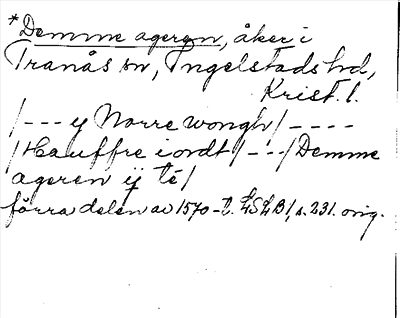 *Demme ageren, åker i
Tranås sn, Ingelstads hd,
Krist. l.
/--- y Norre wongh/----
/Hauffre iordt/---/Demme
ageren ij té/
förra delen av 1570-t. LSLB1, s. 231. orig.